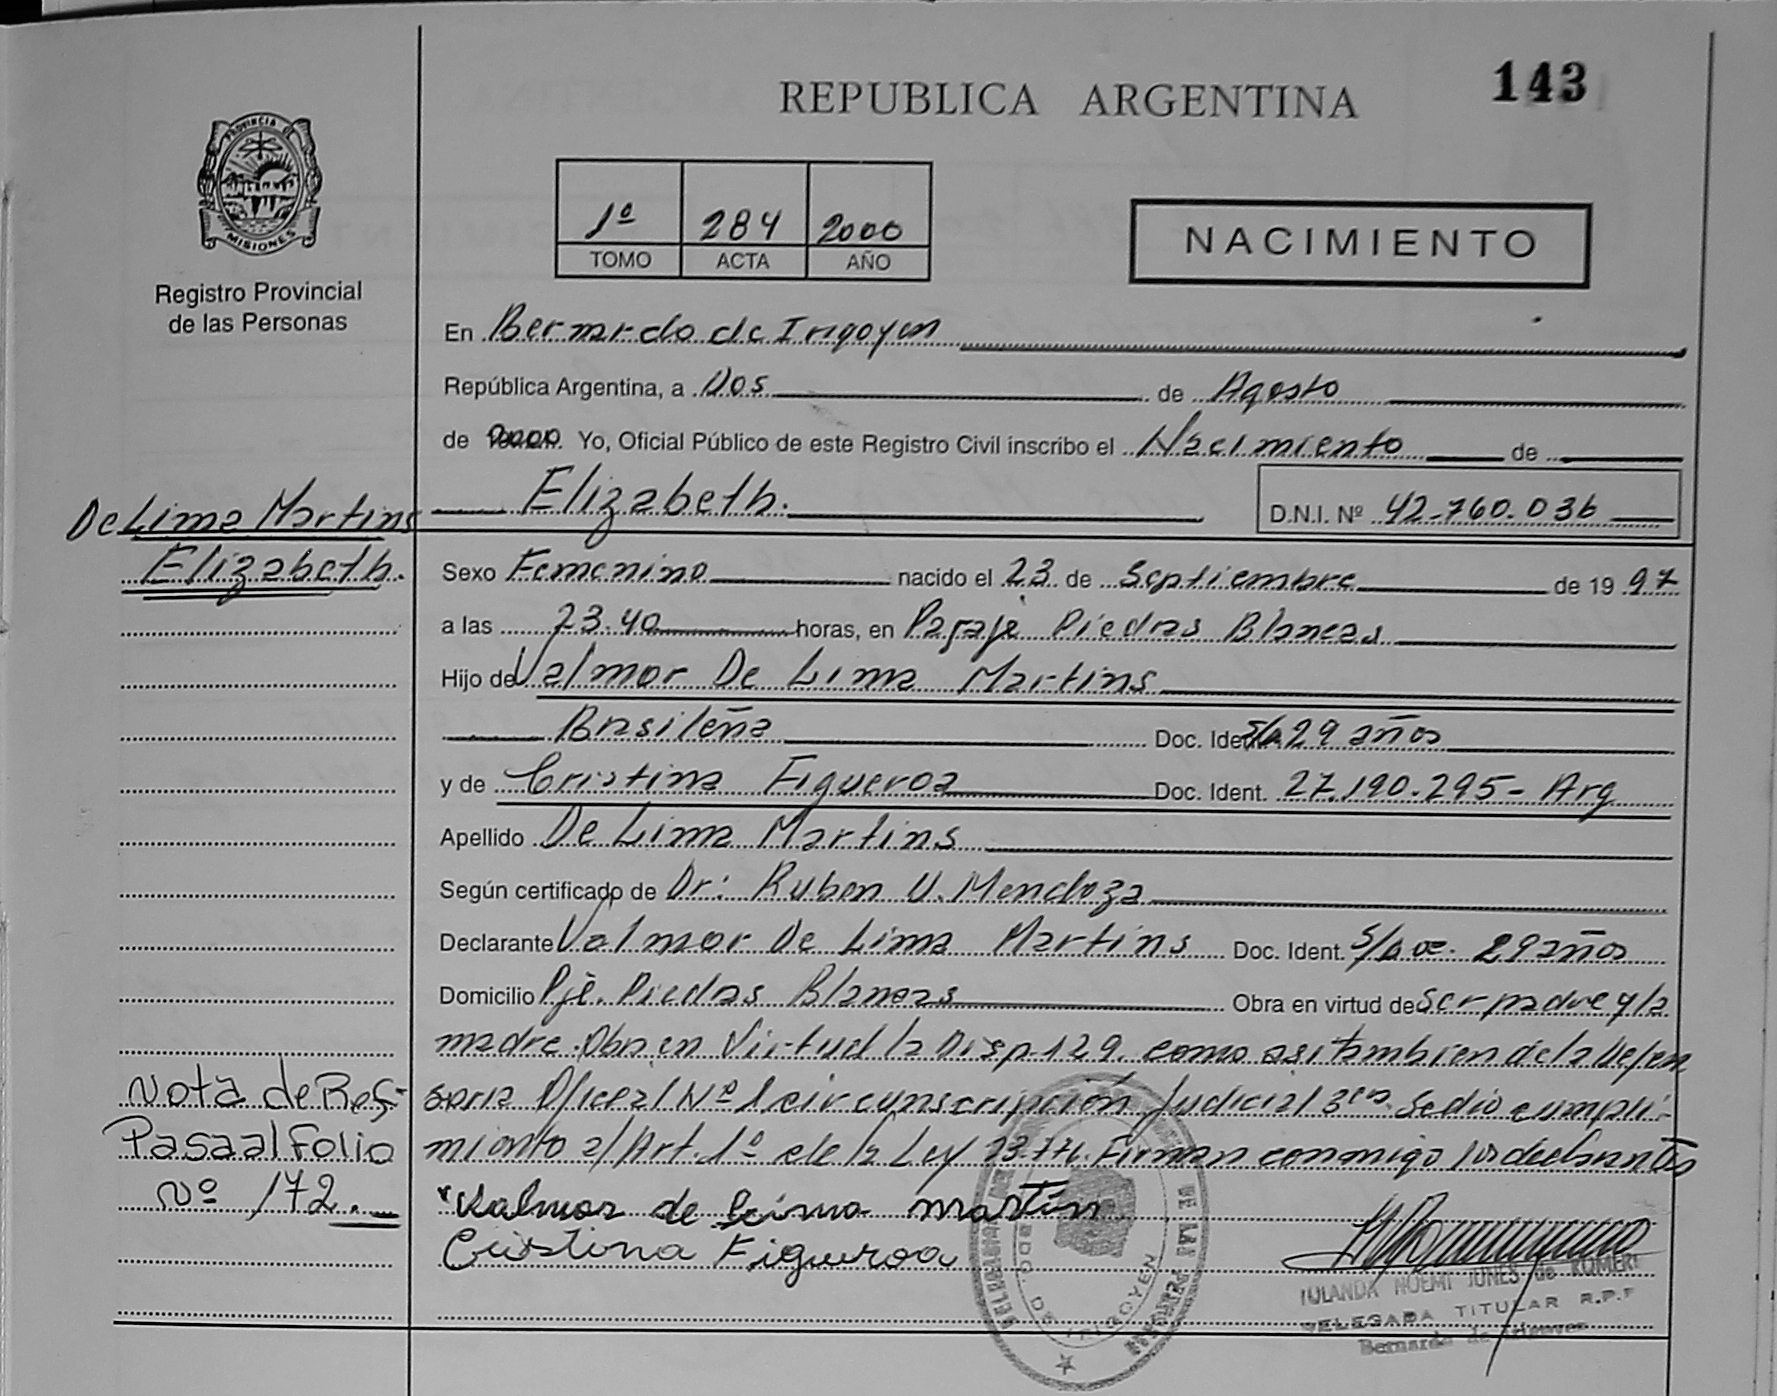 143
REPUBLICA ARGENTINA
PROVINCIA DE
MISIONES
Registro Provincial
de las Personas
1º 284 2000
TOMO ACTA AÑO
NACIMIENTO
En Bernardo de Irigoyen
República Argentina, a Dos de Agosto
de 2000 Yo, Oficial Público de este Registro Civil inscribo el Nacimiento de
De Lima Martins
Elizabeth.
Elizabeth.
D.N.I. Nº 42.760.036
Sexo Femenino nacido el 23 de Septiembre de 1997
a las 23.40 horas, en Paraje Piedras Blancas
Hijo de Valmor De Lima Martins
Brasileña Doc. Ident. 29 años
y de Cristina Figueroa Doc. Ident. 27.190.295- Arg
Apellido De Lima Martins
Según certificado de Dr: Ruben U. Mendoza
Declarante Valmor De Lima Martins Doc. Ident. S/ 29 años
Domicilio Pjè. Piedras Blancas Obra en virtud de Ser padre y la
madre. Obra en Virtud la Disp. 129. como asi tambien de la Defen
soria Oficial Nº 1 circunscripción Judicial 3era. Se dio cumpli-
miento al Art. 1º de la Ley Firman conmigo los declarantes
Nota de Ref-
Pasa al Folio
Nº 172.
Valmor de Lima martin
Cristina Figueroa
DE LAS
BDO. DE IRIGOYEN
YOLANDA NOEMI JUNES de ROMERO
DELEGADA TITULAR R.P.P
Bernardo de Irigoyen